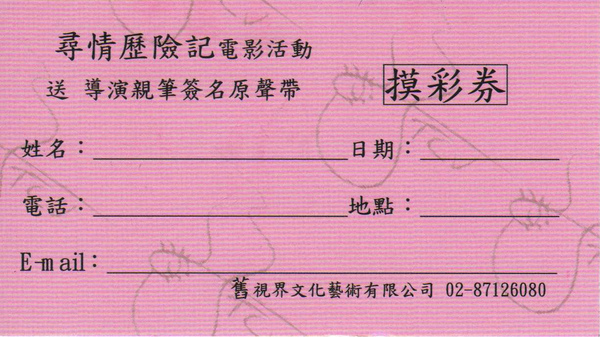 尋情歷險記電影活動
送 導演親筆簽名原聲帶
摸彩券
姓名：＿＿＿＿＿＿＿＿ 日期：＿＿＿＿＿
電話：＿＿＿＿＿＿＿＿ 地點：＿＿＿＿＿
E-mail：＿＿＿＿＿＿＿＿＿＿＿＿＿＿
舊視界文化藝術有限公司 02-87126080